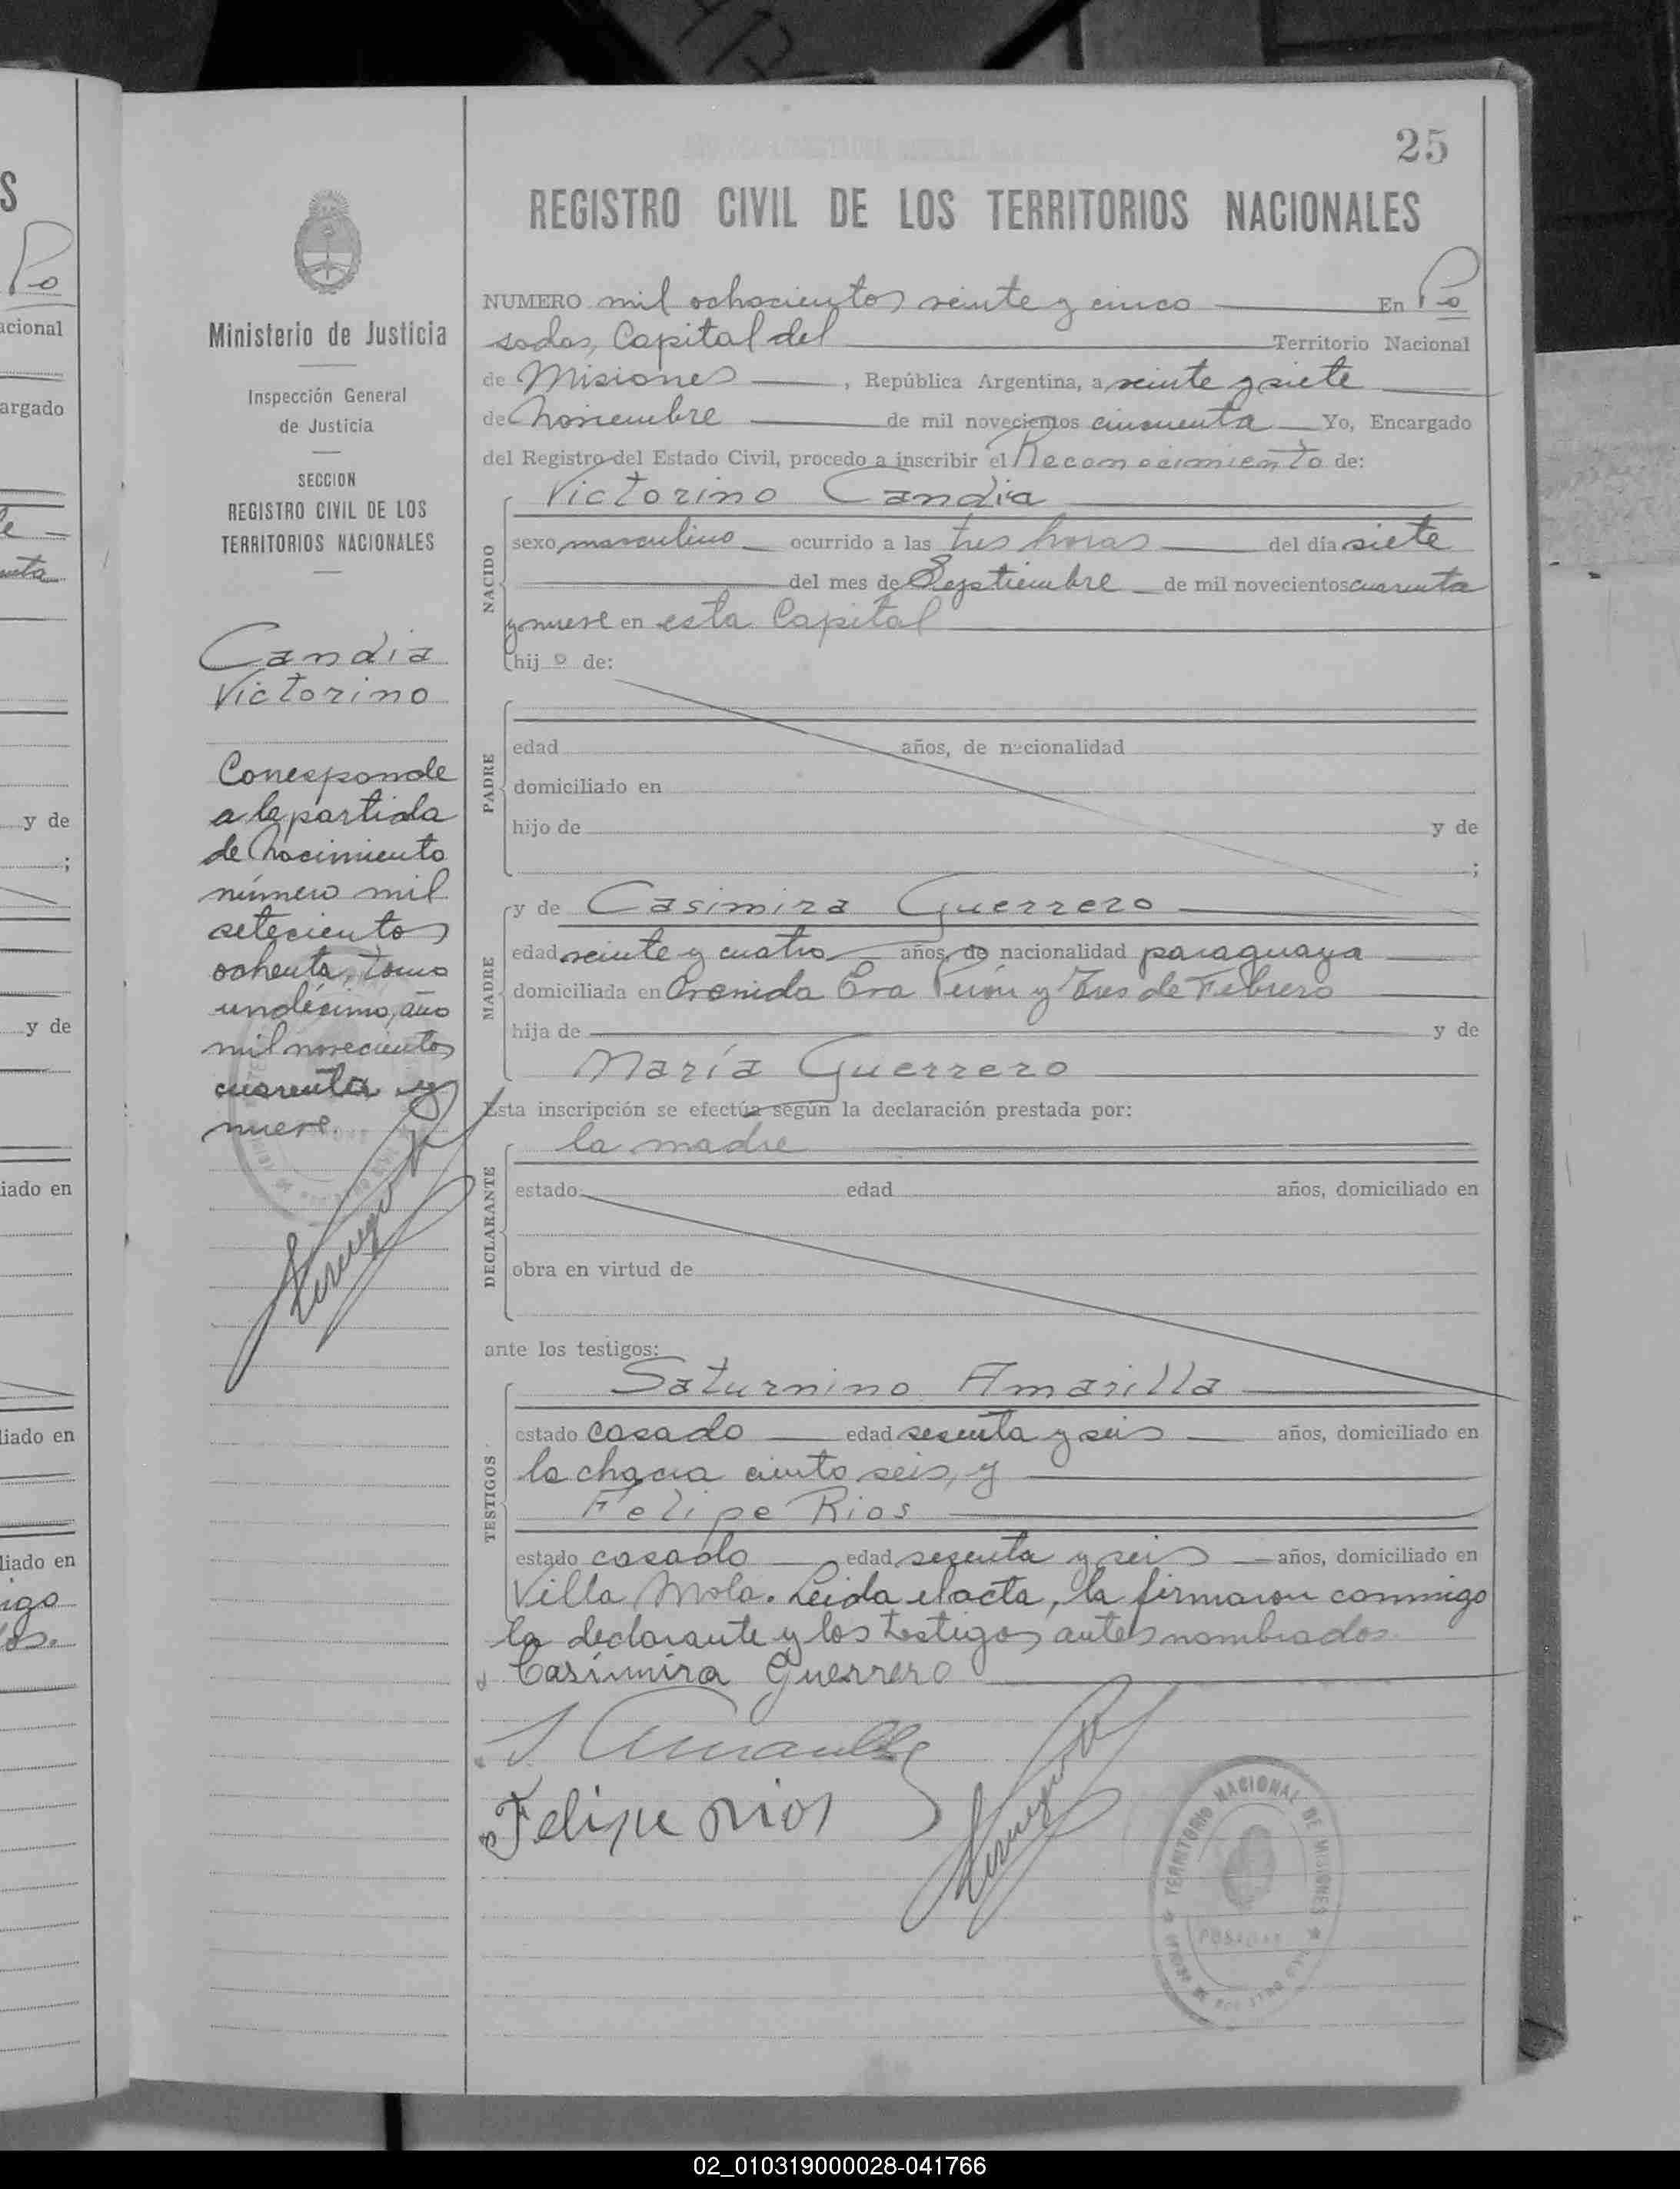 25
REGISTRO CIVIL DE LOS TERRITORIOS NACIONALES
Ministerio de Justicia
Inspección General
de Justicia
SECCION
REGISTRO CIVIL DE LOS
TERRITORIOS NACIONALES
Candia
Victorino
Corresponde
a la partida
de Nacimiento
número mil
setecientos
ochenta, tomo
undécimo, año
mil novecientos
cuarenta y
nueve.
NUMERO mil ochocientos veinte y cinco En Po
sadas, Capital del Territorio Nacional
de Misiones, República Argentina, a veinte y siete
de Noviembre de mil novecientos cincuenta Yo, Encargado
del Registro del Estado Civil, procedo a inscribir el Reconocimiento de:
Victorino Candia
NACIDO
sexo masculino ocurrido a las tres horas del día siete
del mes de Septiembre de mil novecientos cuarenta
y nueve en esta Capital
hijo de:
PADRE
edad años, de nacionalidad
domiciliado en
hijo de y de
;
y de Casimira Guerrero
MADRE
edad veinte y cuatro años, de nacionalidad paraguaya
domiciliada en Avenida Eva Perón y Tres de Febrero
hija de y de
María Guerrero
Esta inscripción se efectúa según la declaración prestada por:
la madre
DECLARANTE
estado edad años, domiciliado en
obra en virtud de
ante los testigos:
Saturnino Amarilla
TESTIGOS
estado casado edad sesenta y seis años, domiciliado en
la chacra ciento seis, y
Felipe Rios
estado casado edad sesenta y seis años, domiciliado en
Villa Mola. Leida el acta, la firmaron conmigo
la declarante y los testigos antes nombrados.
Casimira Guerrero
S. Amarilla
Felipe rios
TERRITORIO NACIONAL DE MISIONES
POSADAS
02_010319000028-041766